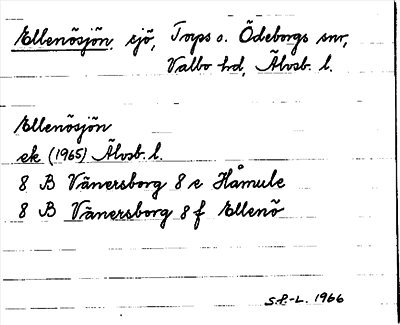 Ellenösjön, sjö, Torps o. Ödeborgs snr,
Valbo hd, Älvsb. l.
Ellenösjön
ek (1965) Älvsb. l.
8 B Vänersborg 8 e Håmule
8 B Vänersborg 8 f Ellenö
S.F.-L. 1966